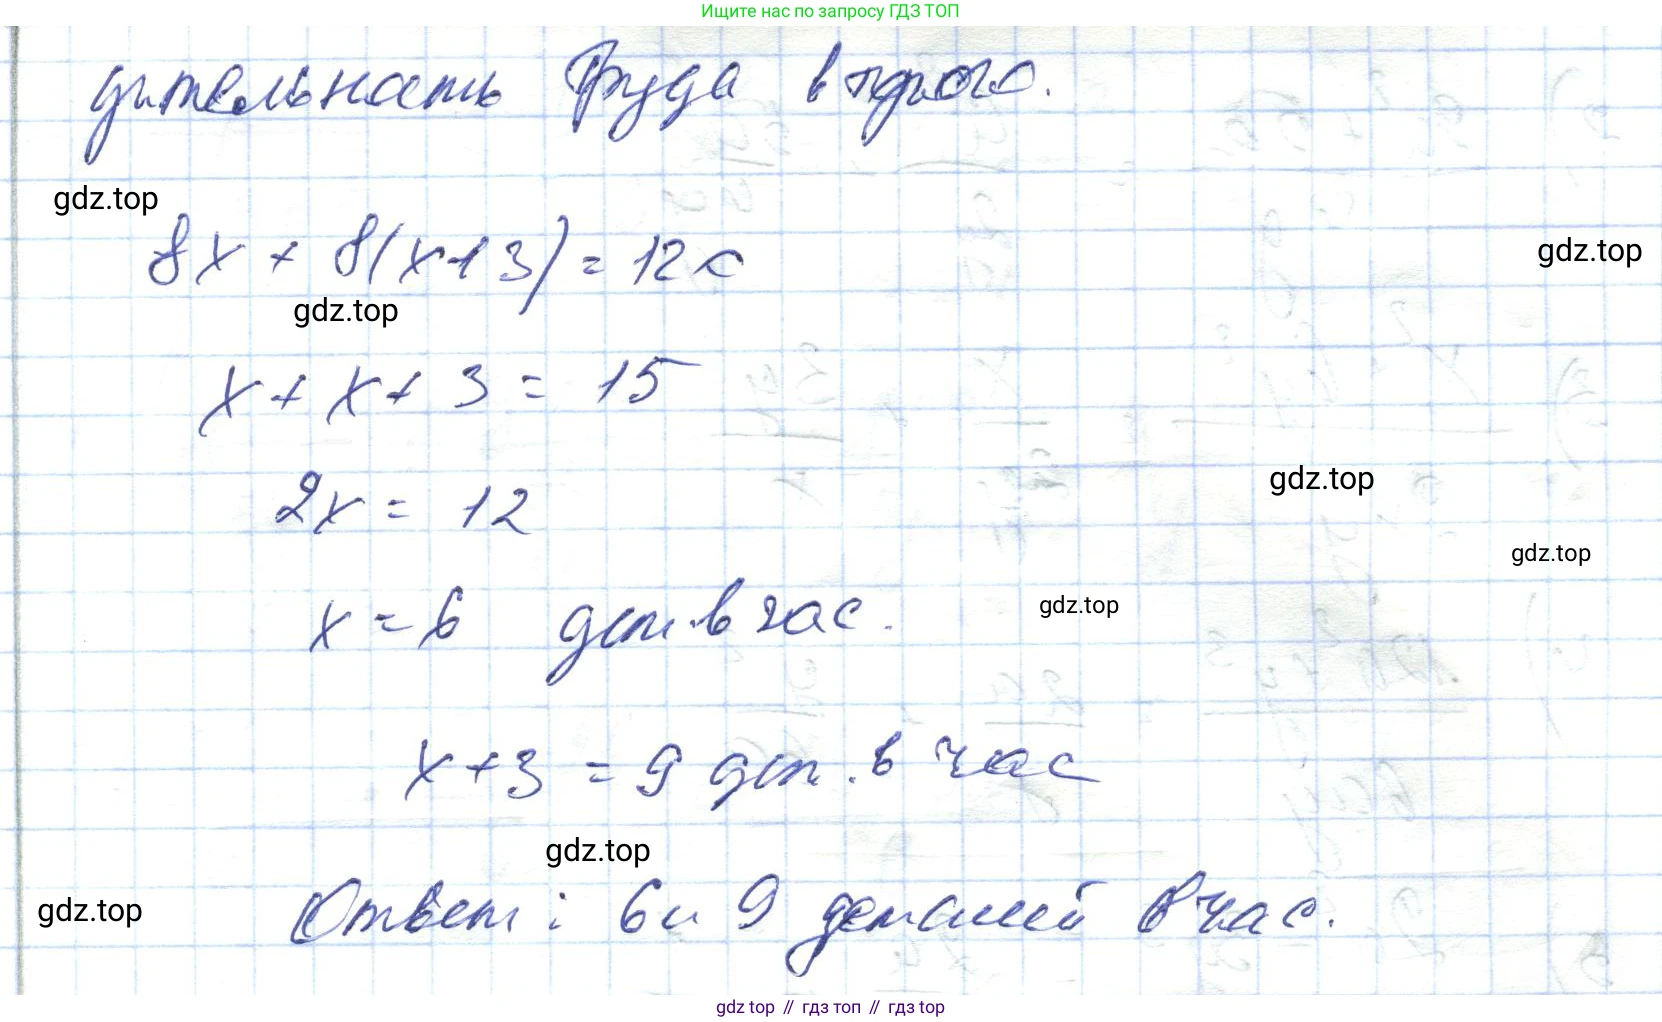 Ищите нас по запросу ГДЗ ТОП
дительность труда второго.
gdz.top
8x + 8(x+3) = 120
gdz.top
gdz.top
x + x + 3 = 15
2x = 12
gdz.top
gdz.top
x = 6 дет. в час.
gdz.top
x + 3 = 9 дет. в час
gdz.top
gdz.top
Ответ: 6 и 9 деталей в час.
gdz top // гдз топ // гдз top